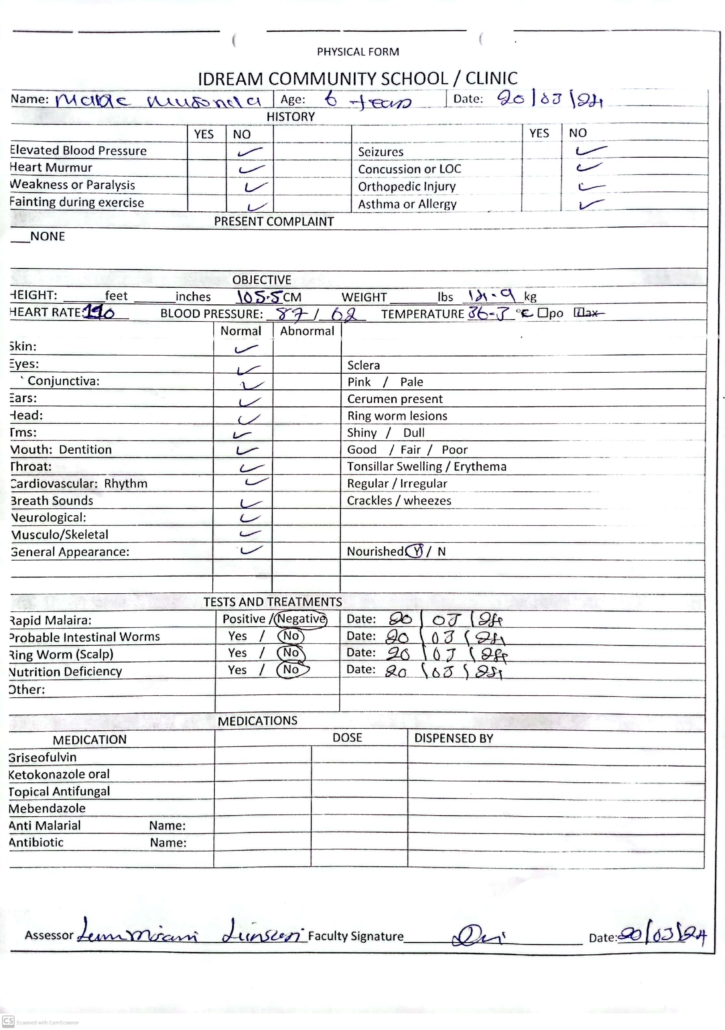 PHYSICAL FORM
IDREAM COMMUNITY SCHOOL / CLINIC
Name: Age: 6 years Date: 20/03/24
HISTORY
YES NO YES NO
Elevated Blood Pressure ✓ Seizures ✓
Heart Murmur ✓ Concussion or LOC ✓
Weakness or Paralysis ✓ Orthopedic Injury ✓
Fainting during exercise ✓ Asthma or Allergy ✓
PRESENT COMPLAINT
__NONE
OBJECTIVE
HEIGHT: ______feet ______inches 105.5CM WEIGHT ______ lbs kg
HEART RATE: BLOOD PRESSURE: 87 / 62 TEMPERATURE 36.3 °C □po □ax
Normal Abnormal
Skin: ✓
Eyes: ✓ Sclera
Conjunctiva: ✓ Pink / Pale
Ears: ✓ Cerumen present
Head: ✓ Ring worm lesions
Tms: ✓ Shiny / Dull
Mouth: Dentition ✓ Good / Fair / Poor
Throat: ✓ Tonsillar Swelling / Erythema
Cardiovascular: Rhythm ✓ Regular / Irregular
Breath Sounds ✓ Crackles / wheezes
Neurological: ✓
Musculo/Skeletal ✓
General Appearance: ✓ Nourished Y / N
TESTS AND TREATMENTS
Rapid Malaira: Positive / Negative Date: 20/03/24
Probable Intestinal Worms Yes / No Date: 20/03/24
Ring Worm (Scalp) Yes / No Date: 20/03/24
Nutrition Deficiency Yes / No Date: 20/03/24
Other:
MEDICATIONS
MEDICATION DOSE DISPENSED BY
Griseofulvin
Ketokonazole oral
Topical Antifungal
Mebendazole
Anti Malarial Name:
Antibiotic Name:
Assessor Faculty Signature Date: 20/03/24
CS Scanned with CamScanner